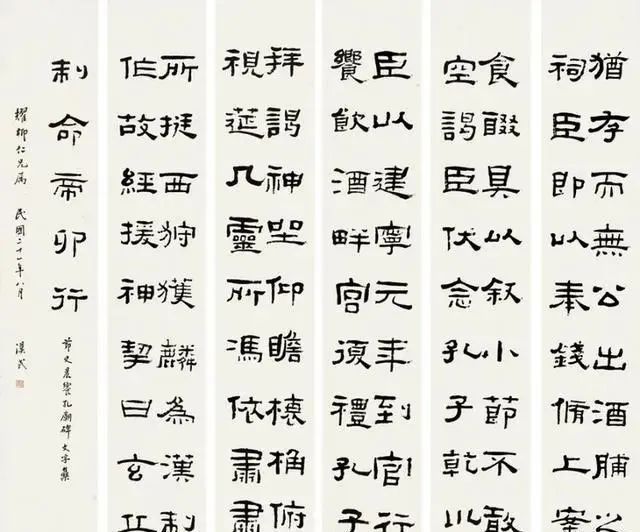 猶存而無公出酒脯之
祠臣即以奉錢脩上案
食醊具以叙小節不敢
空謁臣伏念孔子乾
臣以建寧元年到官行
饗飲酒畔宮復禮孔子
拜謁神坐仰瞻榱桷俯
視筵几靈所馮依肅肅
所挺西狩獲麟為漢制
作故經援神契曰玄丘
制命帝卯行
節史晨饗孔廟碑文字集
耀卿仁兄屬 民國二十一年八月 漢民